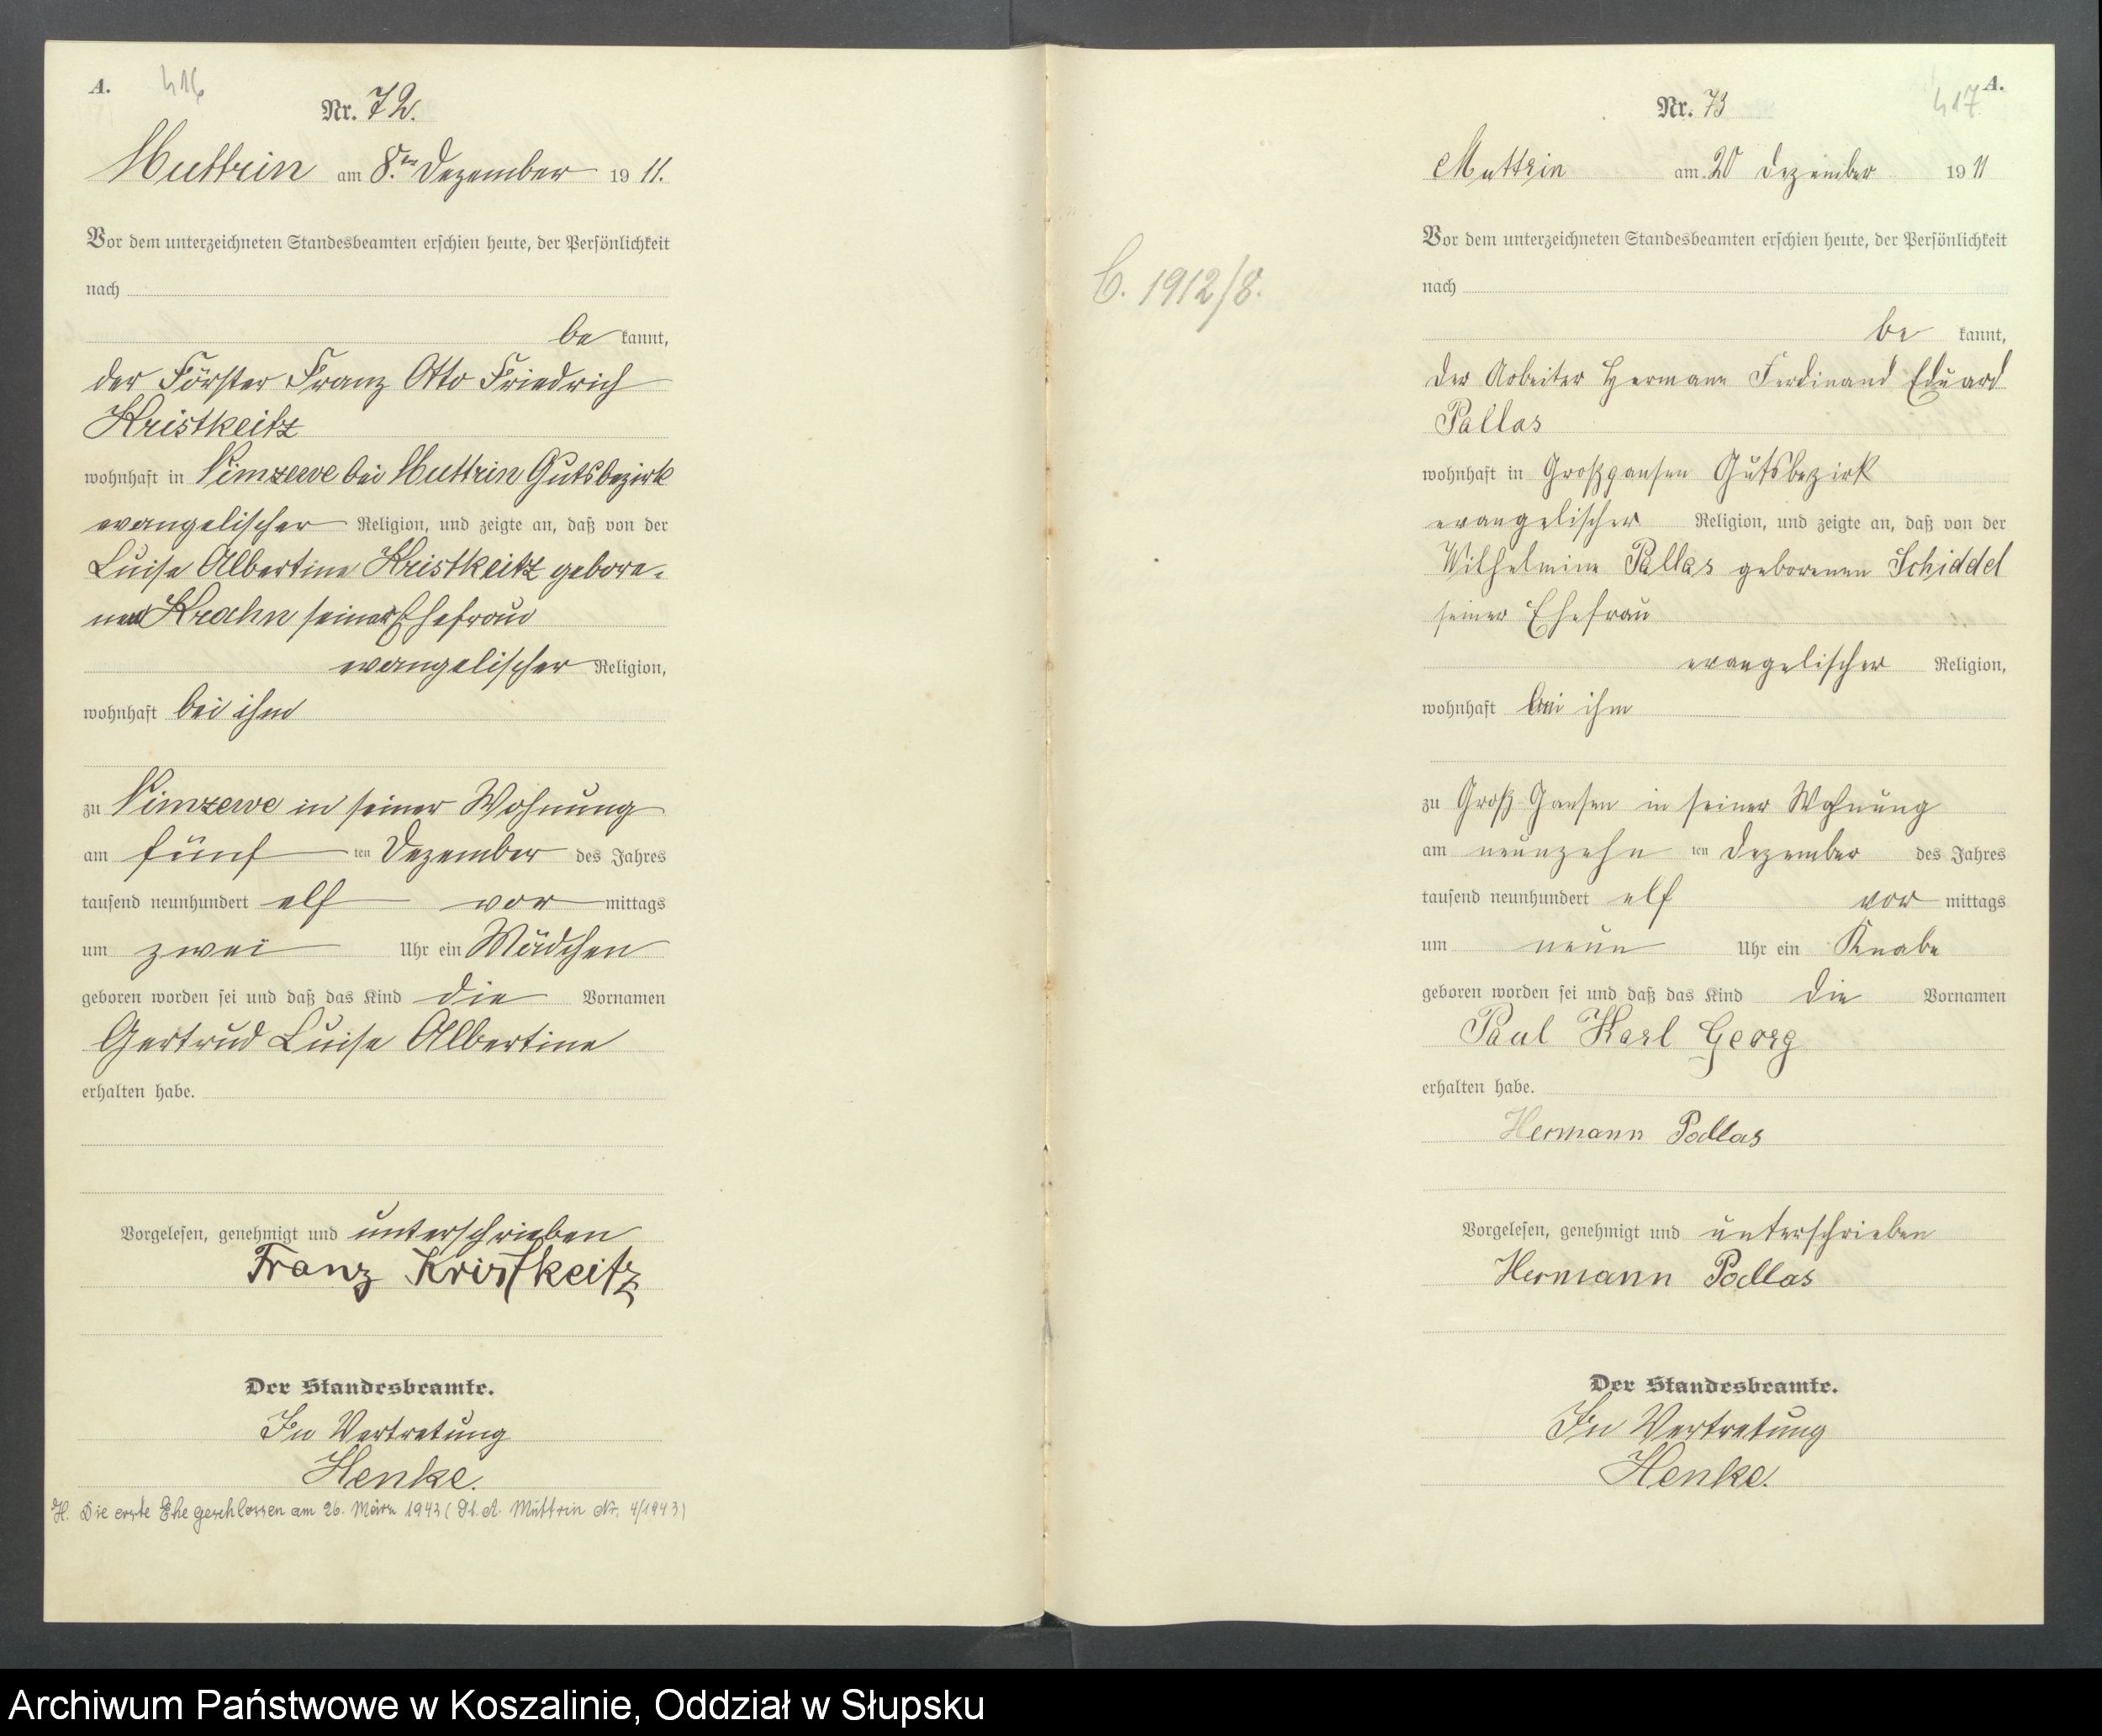 A.
416
Nr. 72.
Muttrin am 8.ten Dezember 1911.
Vor dem unterzeichneten Standesbeamten erschien heute, der Persönlichkeit
nach
be kannt,
der Förster Franz Otto Friedrich
Kristkeitz
wohnhaft in Nimzewe bei Muttrin Gutsbezirk
evangelischer Religion, und zeigte an, daß von der
Luise Albertine Kristkeitz gebore-
nen Krahn seiner Ehefrau
evangelischer Religion,
wohnhaft bei ihm
zu Nimzewe in seiner Wohnung
am fünf ten Dezember des Jahres
tausend neunhundert elf vor mittags
um zwei Uhr ein Mädchen
geboren worden sei und daß das Kind die Vornamen
Gertrud Luise Albertine
erhalten habe.
Vorgelesen, genehmigt und unterschrieben
Franz Kristkeitz
Der Standesbeamte.
In Vertretung
Henke.
H. Die erste Ehe geschlossen am 26. März 1943 (St. A. Muttrin Nr. 4/1943)
C. 1912/8.
A.
417
Nr. 73
Muttrin am 20 Dezember 1911
Vor dem unterzeichneten Standesbeamten erschien heute, der Persönlichkeit
nach
be kannt,
der Arbeiter Hermann Ferdinand Eduard
Pallas
wohnhaft in Großgansen Gutsbezirk
evangelischer Religion, und zeigte an, daß von der
Wilhelmine Pallas geborenen Schiddel
seiner Ehefrau
evangelischer Religion,
wohnhaft bei ihm
zu Groß-Gansen in seiner Wohnung
am neunzehn ten Dezember des Jahres
tausend neunhundert elf vor mittags
um neun Uhr ein Knabe
geboren worden sei und daß das Kind die Vornamen
Paul Karl Georg
erhalten habe.
Hermann Pallas
Vorgelesen, genehmigt und unterschrieben
Hermann Pallas
Der Standesbeamte.
In Vertretung
Henke.
Archiwum Państwowe w Koszalinie, Oddział w Słupsku